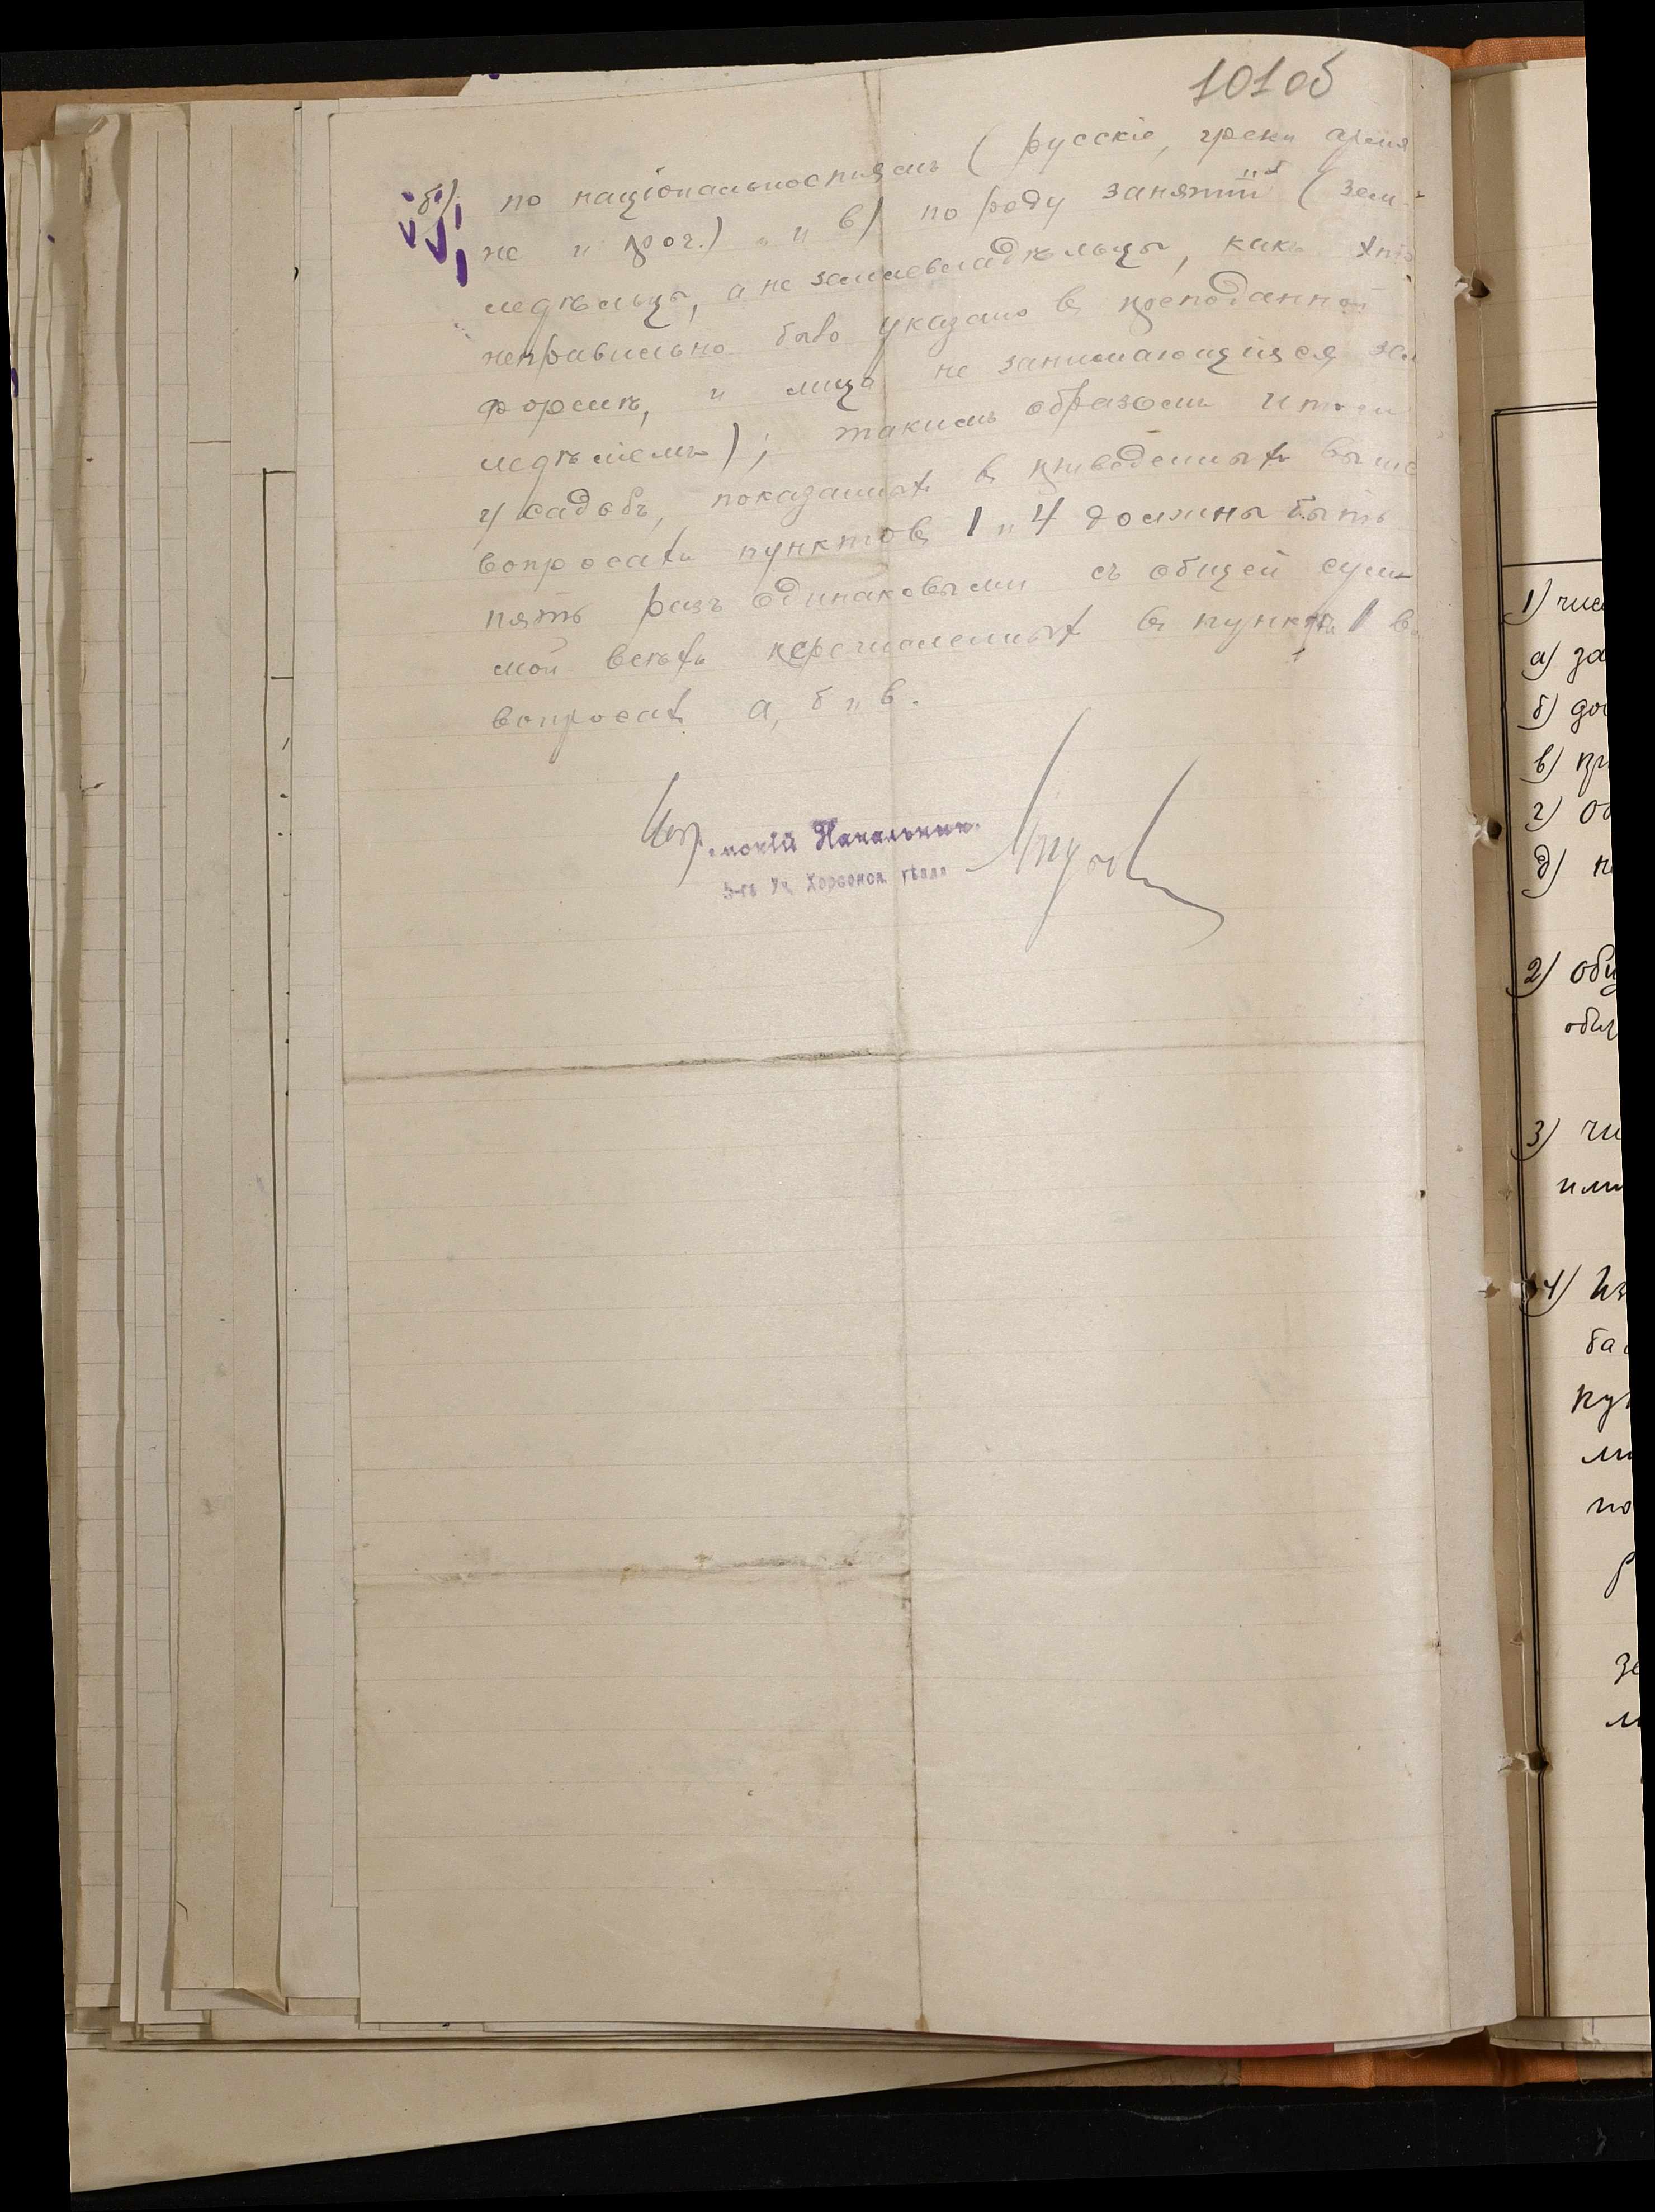 101об
б) по національностямъ (русскіе, греки армя
не и проч.) и в) по роду занятій (зем-
ледѣльцы, а не землевладѣльцы, какъ это
неправильно было указано въ преподанной
формѣ, и лица не занимающіяся зем
ледѣліемъ); такимъ образомъ итоги
усадьбъ, показанныхъ въ приведенныхъ выше
вопросахъ пунктовъ 1 и 4 должны быть
пять разъ одинаковыми съ общей сум-
мой всѣхъ перечисленныхъ въ пунктѣ 1 въ
вопросахъ а, б и в.
Начальникъ
5-го Уч. Херсонск. уѣзда
1) чис
а) за
б) до
в) пр
г) об
д) н
2) общ
3) чи
или
4) Из
ба
ку
ми
по
р
зе